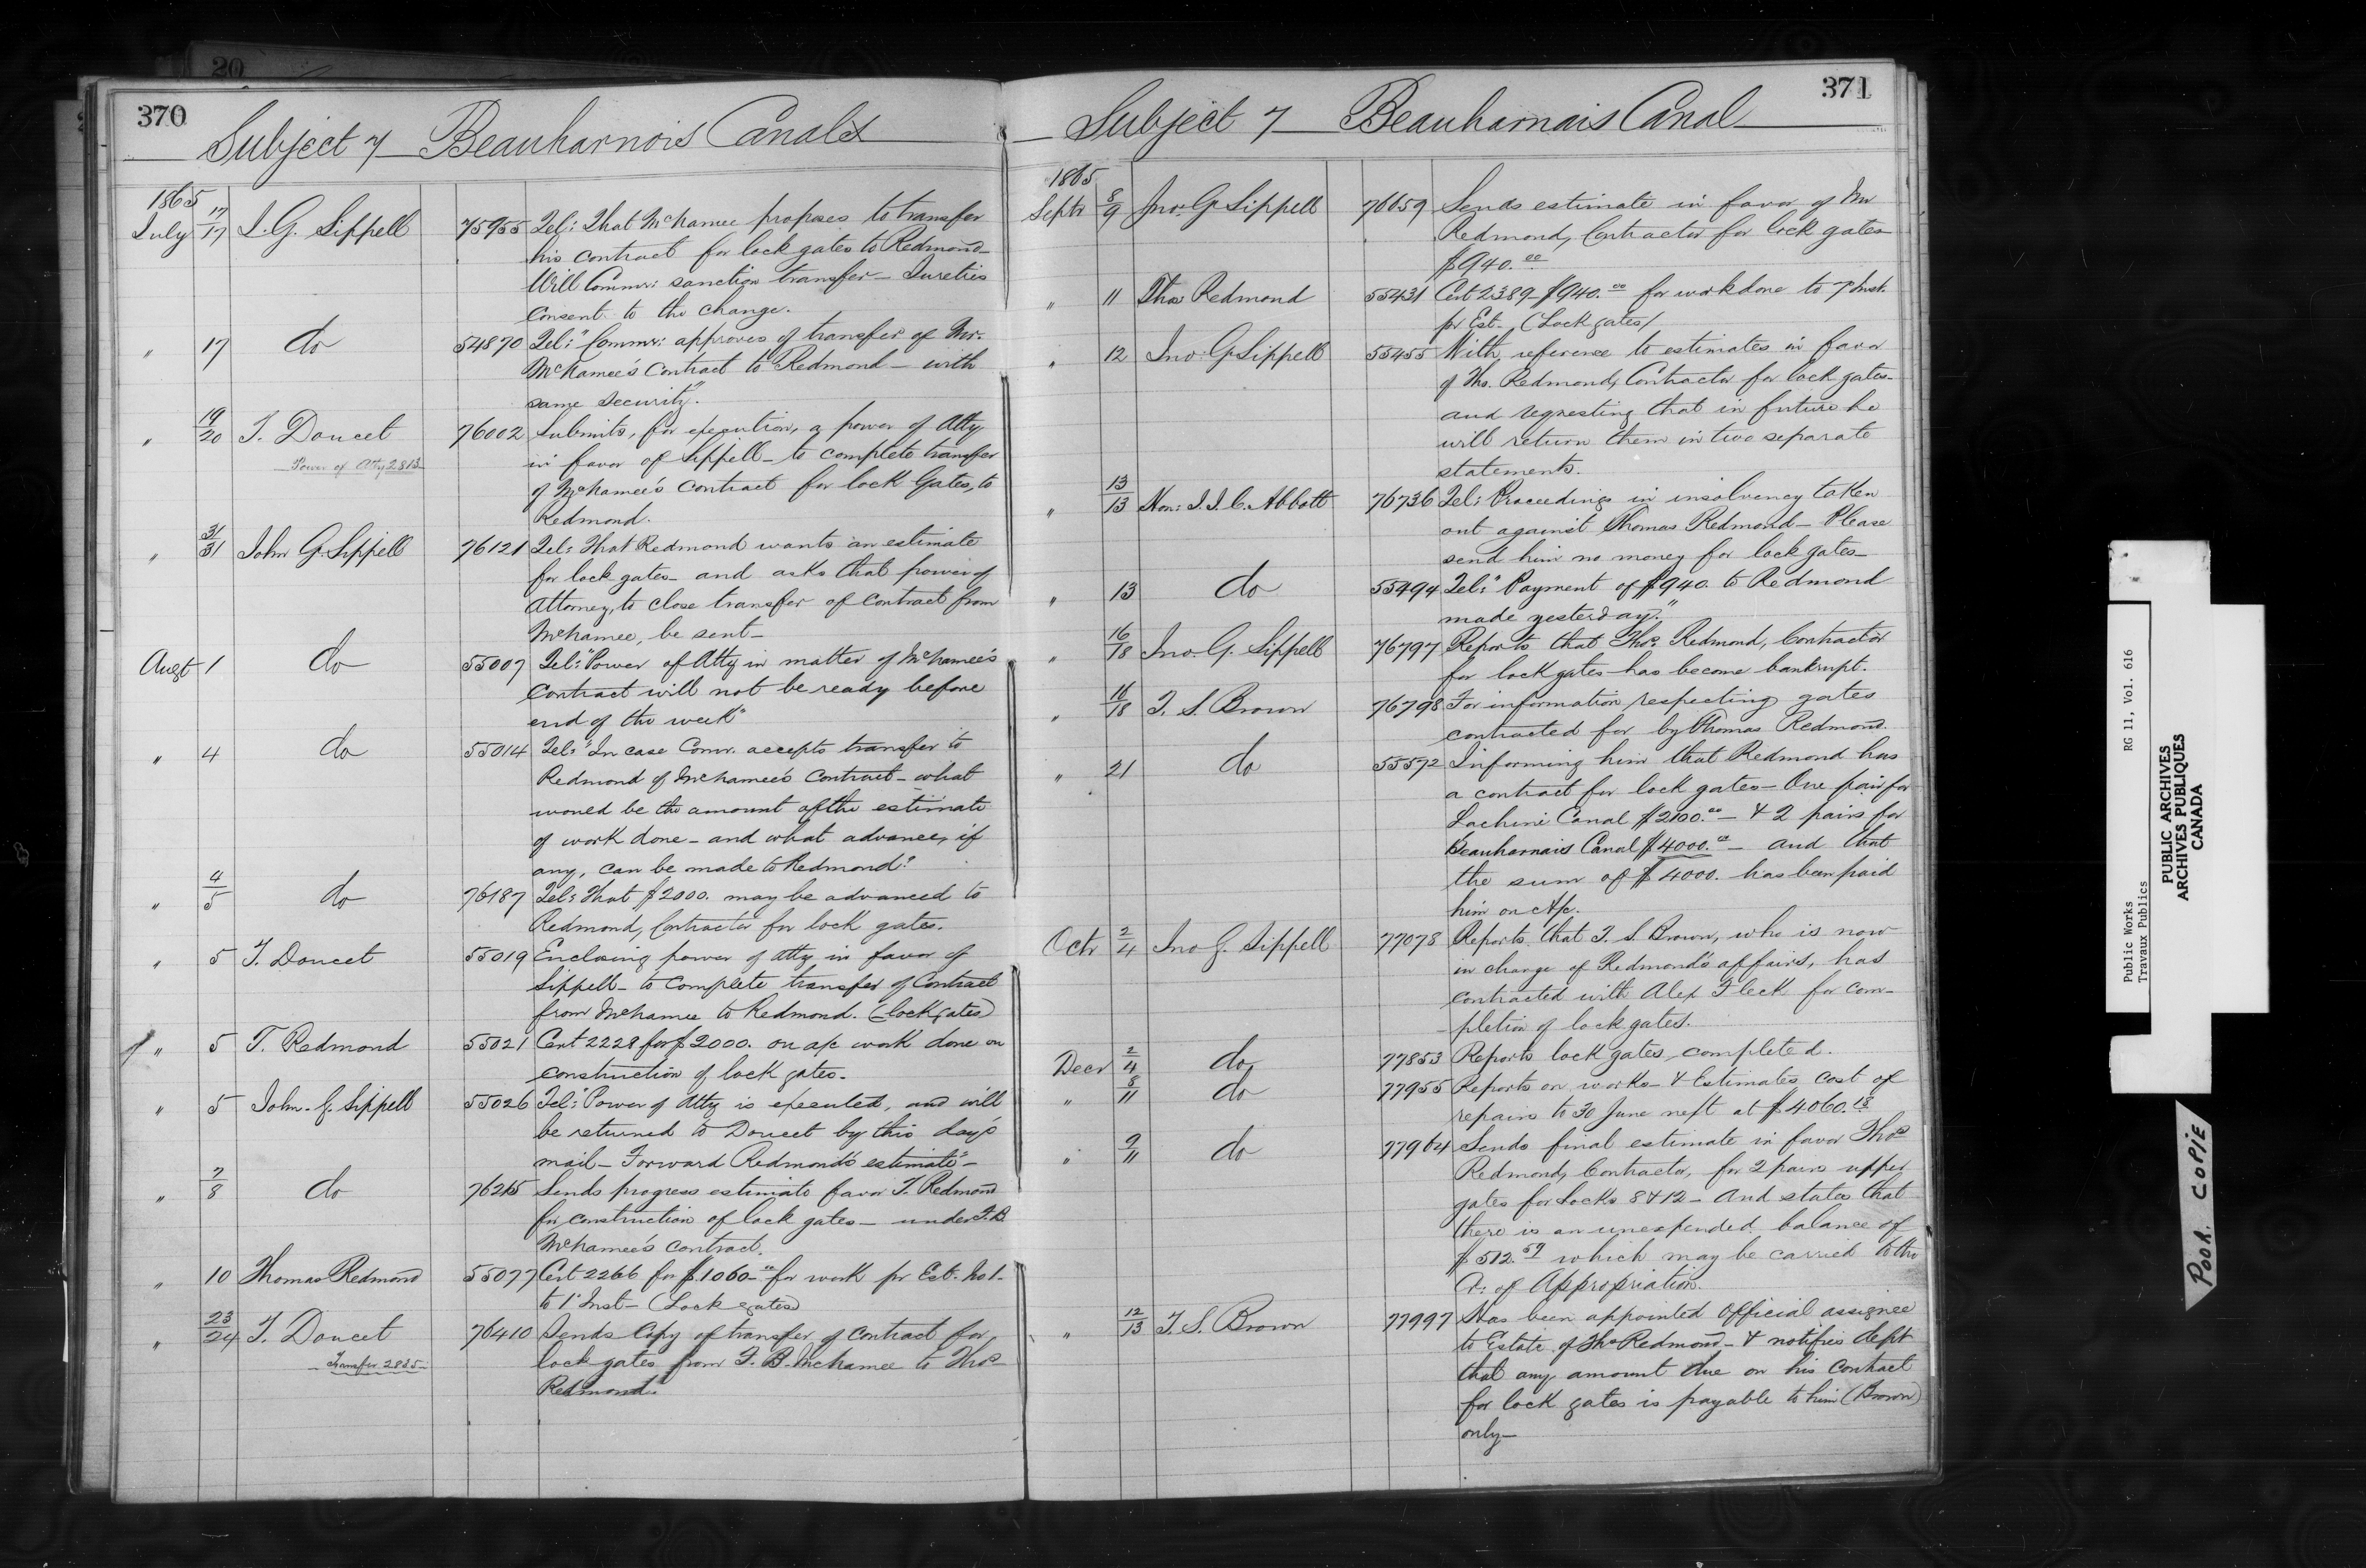 20
370
Subject 7 Beauharnois Canals
1865
July 17/17 J. G. Sippell 75955 Tel: That McNamee proposes to transfer
his contract for lock gates to Redmond_
Will Commr: sanction transfer_ Sureties
consent to the change.
" 17 do 54870 Tel: "Commr: approves of transfer of Mr.
McNamee's Contract to Redmond _ with
same security".
" 19/20 T. Doucet 76002 Submits, for execution, a power of Atty
Power of Atty 2813 in favor of Sippell_ to complete transfer
of McNamee's Contract for lock Gates, to
Redmond.
" 31/31 John G. Sippell 76121 Tel: That Redmond wants an estimate
for lock gates_ and asks that power of
Attorney, to close transfer of contract from
McNamee, be sent_
Augt 1 do 55007 Tel: "Power of Atty in matter of McNamee's
Contract will not be ready before
end of the week"
" 4 do 55014 Tel: "In case Comr. accepts transfer to
Redmond of McNamee's Contract_ what
would be the amount of the estimate
of work done_ and what advance, if
any, can be made to Redmond?
" 4/5 do 76187 Tel: That $2000. may be advanced to
Redmond, Contractor for lock gates.
" 5 T. Doucet 55019 Enclosing power of Atty in favor of
Sippell_ to complete transfer of Contract
from McNamee to Redmond. (lock gates)
" 5 T. Redmond 55021 Cert 2228 for $2000. on a/c work done on
construction of lock gates.
" 5 John. G. Sippell 55026 Tel: "Power of Atty is executed, and will
be returned to Doucet by this day's
mail_ Forward Redmond's estimate"_
" 7/8 do 76215 Sends progress estimate favor T. Redmond
for construction of lock gates_ under F. B.
McNamee's contract.
" 10 Thomas Redmond 55077 Cert 2266 for $1060_00 for work pr Est. No 1_
to 1' Inst_ (Lock gates)
" 23/24 T. Doucet 76410 Sends Copy of transfer of Contract for
Transfer 2835 lock gates from F. B. McNamee to Thos
Redmond.
371
Subject 7 Beauharnais Canal
1865
Septr 8/9 Jno. G. Sippell 76659 Sends estimate in favor of Mr
Redmond, Contractor for lock gates
$940.00
" 11 Thos Redmond 55431 Cert 2389_ $940.00 for work done to 7 Inst.
pr Est. (Lock gates)
" 12 Jno. G. Sippell 55455 With reference to estimates in favor
of Tho. Redmond, Contractor for lock gates_
and requesting that in future he
will return them in two separate
statements.
" 13/13 Hon: J. J. C. Abbott 76736 Tel: Proceedings in insolvency taken
out against Thomas Redmond_ Please
send him no money for lock gates_
" 13 do 55494 Tel: "Payment of $940. to Redmond
made yesterday."
" 16/18 Jno. G. Sippell 76797 Reports that Thos. Redmond, Contractor
for lock gates has become bankrupt.
" 16/18 T. S. Brown 76798 For information respecting gates
contracted for by Thomas Redmond.
" 21 do 55572 Informing him that Redmond has
a contract for lock gates_ One pair for
Lachine Canal $2100.00 _ & 2 pairs for
Beauharnais Canal $4000.00 _ and that
the sum of $4000. has been paid
him on A/c.
Octr 2/4 Jno G. Sippell 77078 Reports that T. S. Brown, who is now
in charge of Redmond's affairs, has
contracted with Alex Fleck for com-
-pletion of lock gates.
Decr 2/4 do 77853 Reports lock gates completed.
" 8/11 do 77955 Reports on works_ & Estimates cost of
repairs to 30 June next at $4060.13
" 9/11 do 77964 Sends final estimate in favor Thos
Redmond, Contractor, for 2 pairs upper
gates for Locks 8 & 12_ And states that
there is an unexpended balance of
$512.59 which may be carried to the
Cr: of Appropriation.
" 12/13 T. S. Brown 77997 Has been appointed Official assignee
to Estate of Thos Redmond_ & notifies dept
that any amount due on his Contract
for lock gates is payable to him (Brown)
only_
Public Works RG 11, Vol. 616
Travaux Publics
PUBLIC ARCHIVES
ARCHIVES PUBLIQUES
CANADA
POOR COPIE